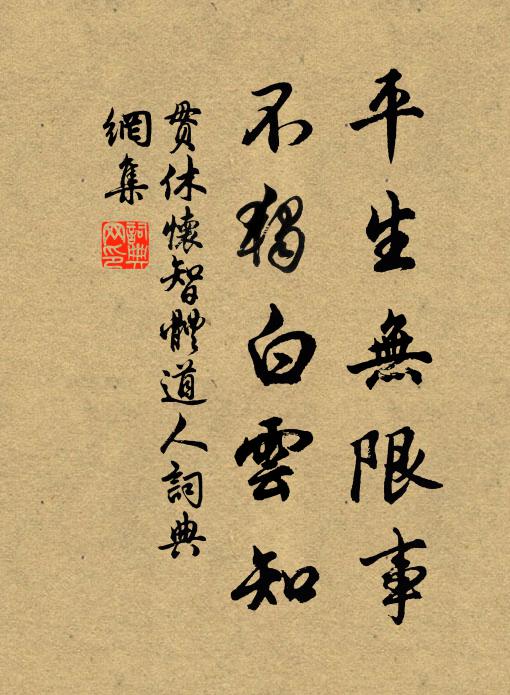 平生無限事
不獨白雲知
貫休懷智體道人詞典
網集
詞典
网印